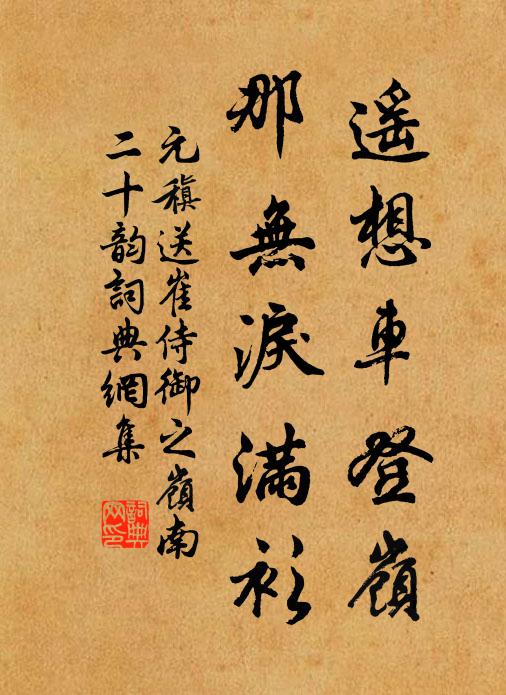 遥想車登嶺
那無淚滿衫
元稹送崔侍御之嶺南
二十韵詞典網集
詞典
网印